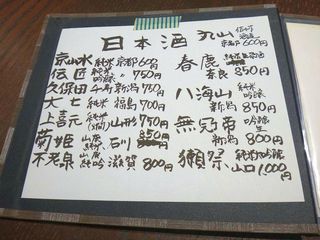 日本酒
京山水 純米 京都 600
伝匠 純米吟醸 750円
久保田 千寿 新潟 750円
大七 純米 福島 700円
上喜元 純米 山形 750円
菊姫 山廃純米 石川 850円
不老泉 山廃純吟 滋賀 800円
丸山 京都 600円
春鹿 純米 奈良 850円
八海山 純米吟醸 新潟 850円
無冠帝 吟醸生 新潟 800円
獺祭 純米大吟醸 山口 1,000円